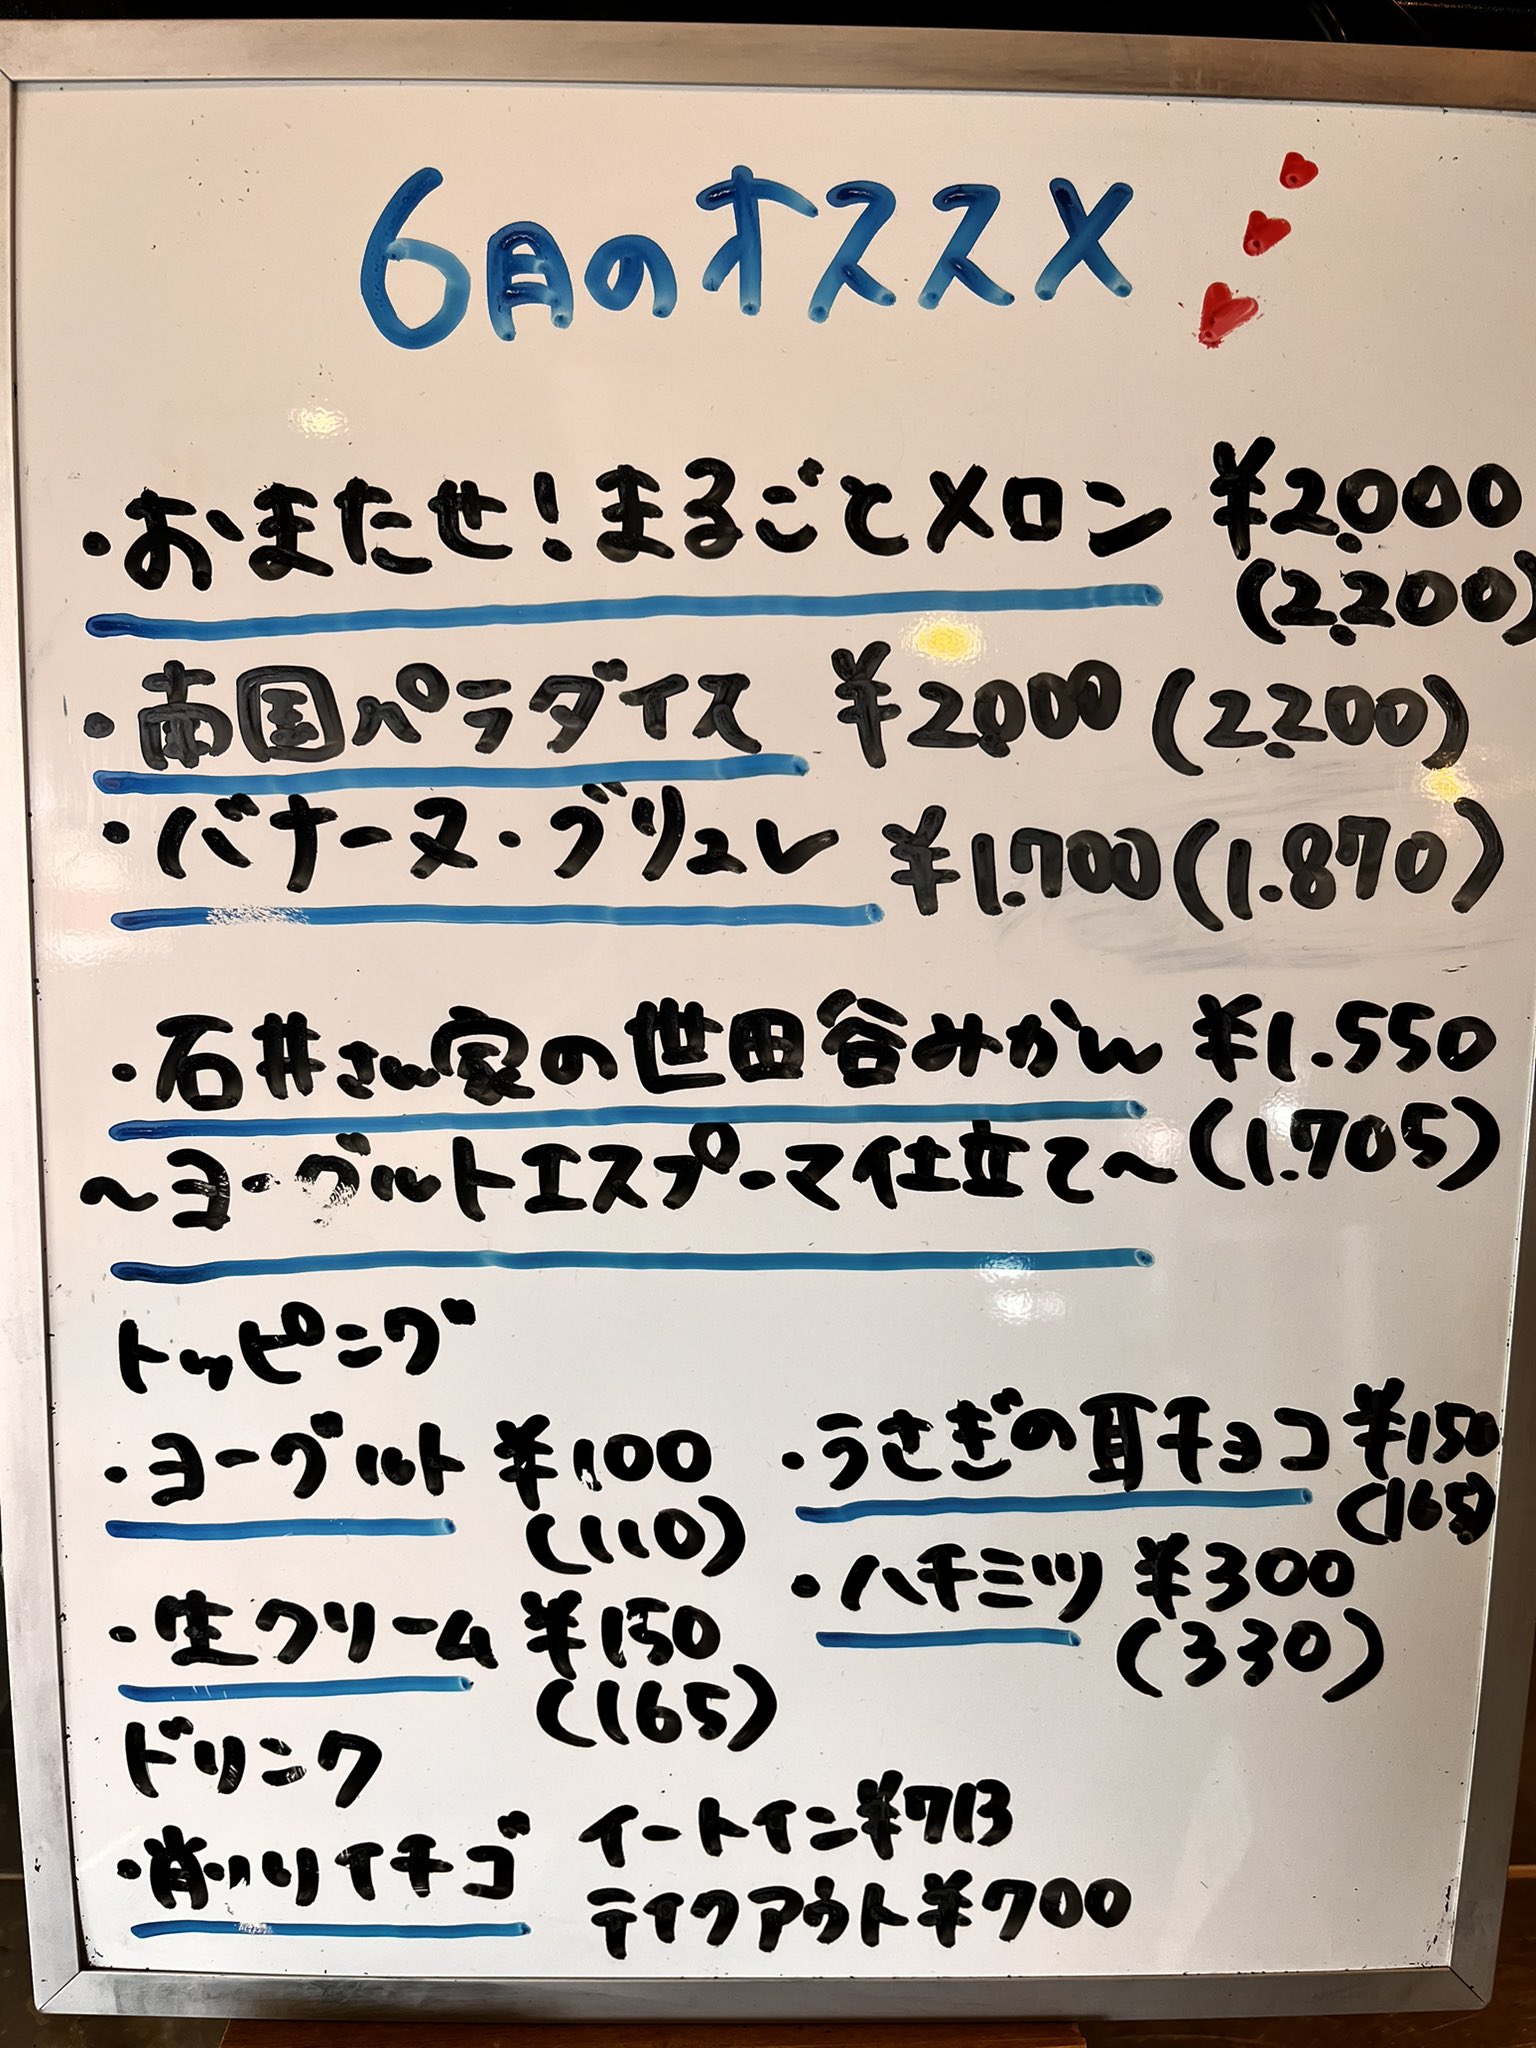 6月のオススメ
・おまたせ!まるごとメロン ¥2.000
(2.200)
・南国パラダイス ¥2.000 (2.200)
・バナーヌ・ブリュレ ¥1.700 (1.870)
・石井さん家の世田谷みかん ¥1.550
～ヨーグルトエスプーマ仕立て～ (1.705)
トッピング
・ヨーグルト ¥100
(110)
・うさぎの耳チョコ ¥150
(165)
・生クリーム ¥150
(165)
・ハチミツ ¥300
(330)
ドリンク
・削りイチゴ イートイン¥713
テイクアウト¥700